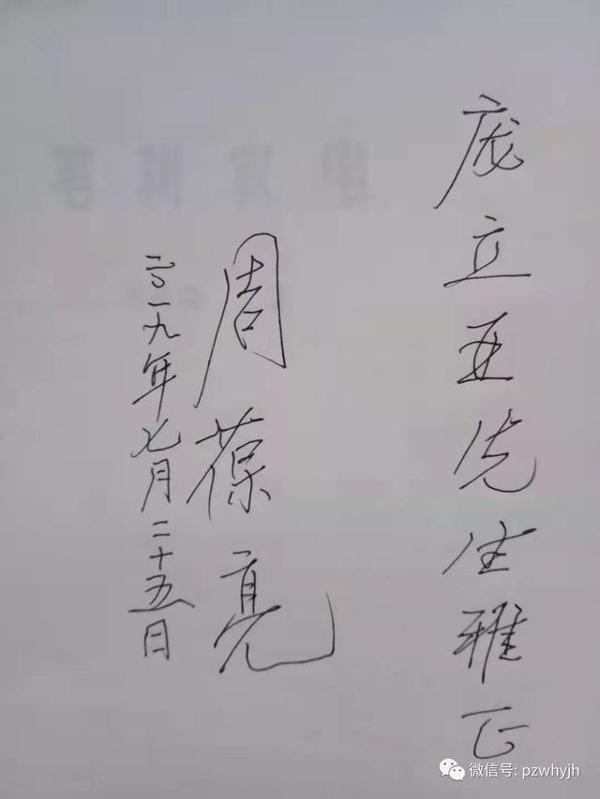 庞立亚先生雅正
周葆亮
二〇一九年七月二十五日
微信号: pzwhyjh